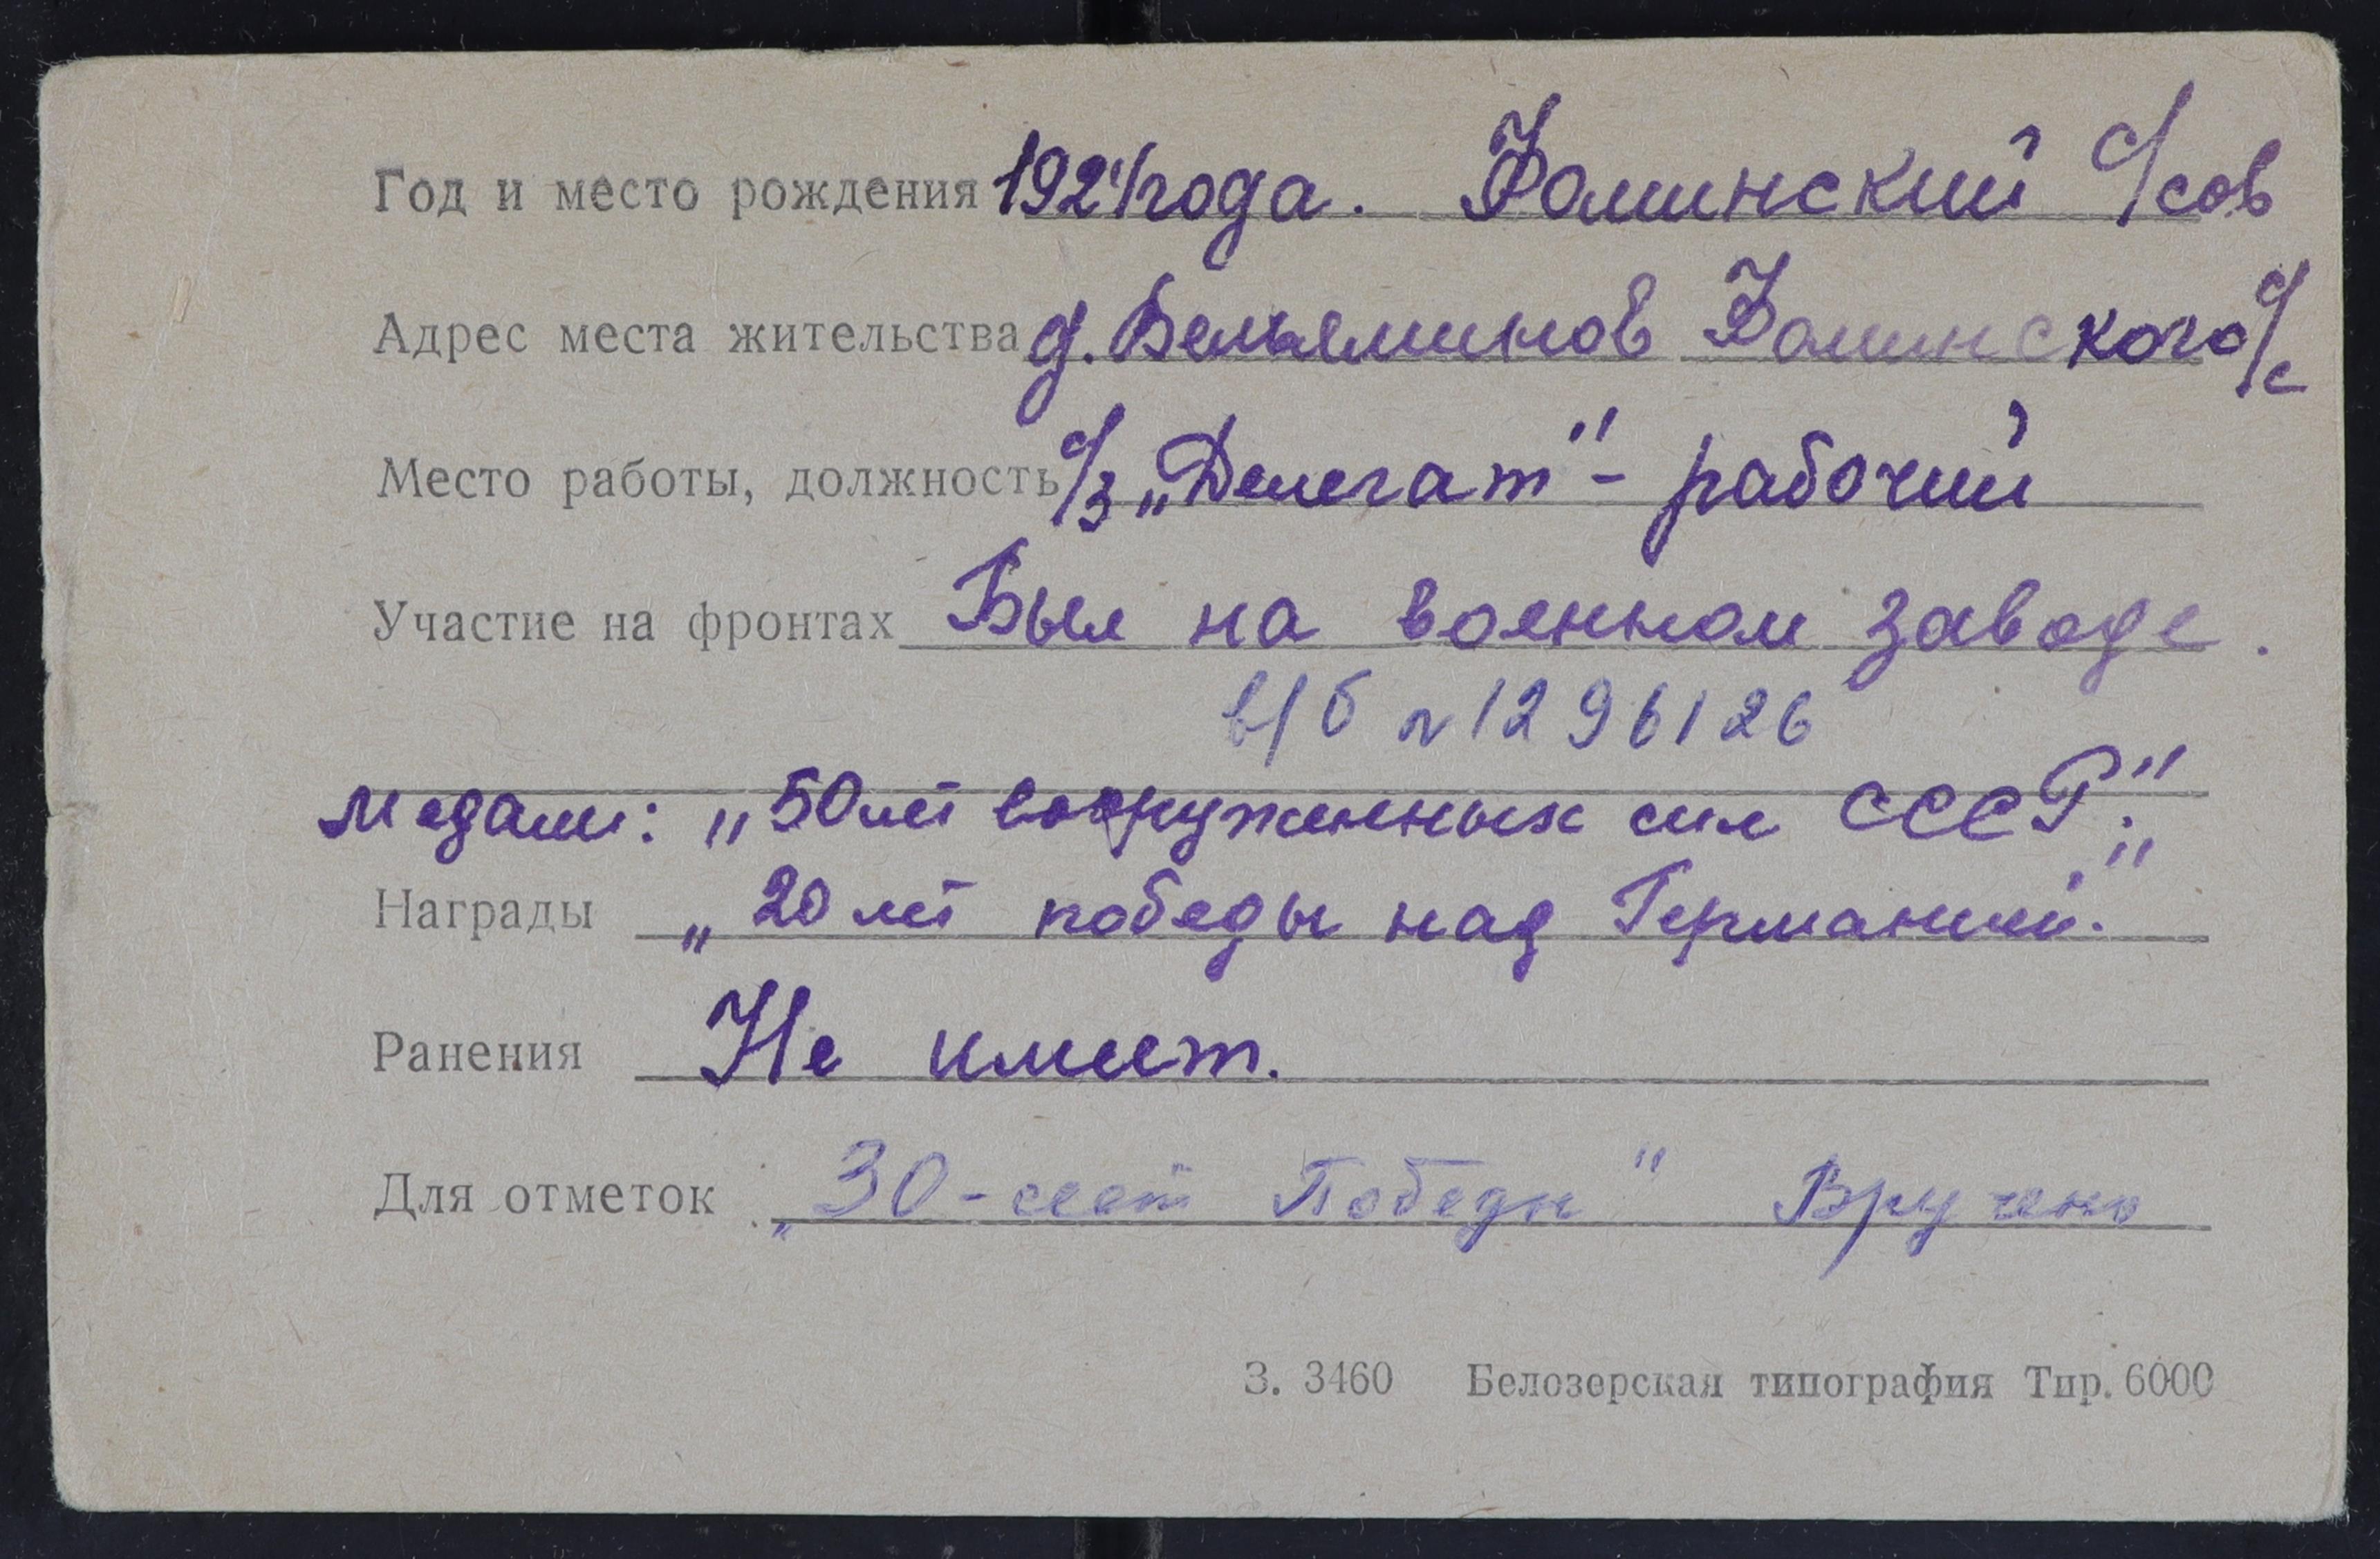 Год и место рождения 1924 года. Фоминский с/сов
Адрес места жительства д. Вельяминов Фоминского с/с
Место работы, должность с/з „Делегат" - рабочий
Участие на фронтах Был на военном заводе.
в/б № 1296126
Медали: „50 лет вооруженных сил СССР";
Награды „20 лет победы над Германией."
Ранения Не имеет.
Для отметок „30-лет Победы" Вручено
З. 3460 Белозерская типография Тир. 6000